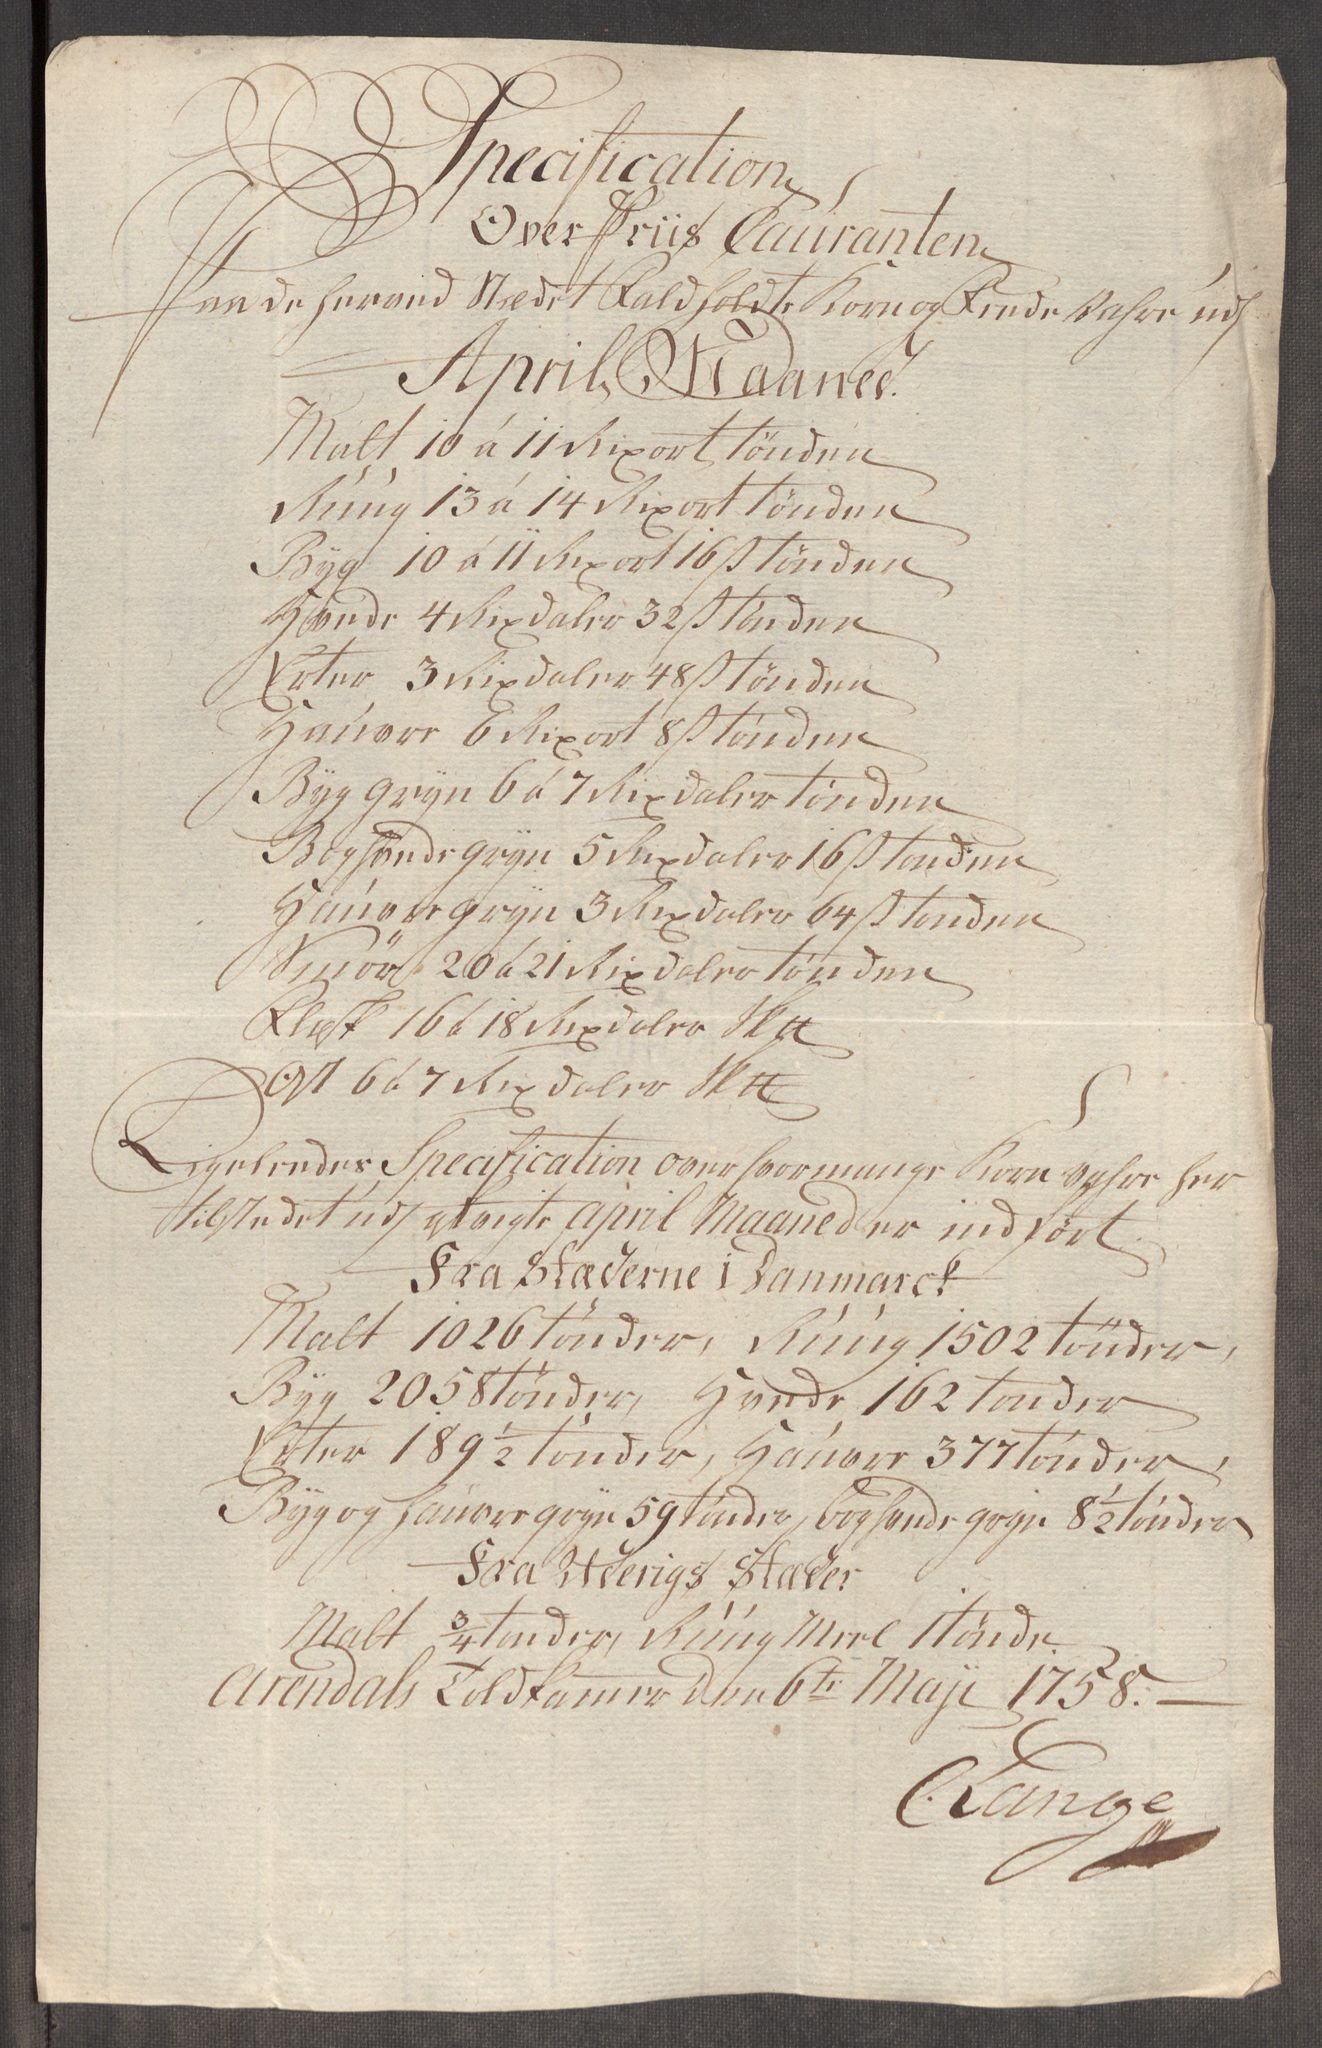 Specification
Over Priis Couranten
Paa de herved Stædet Faldholdte Korn og Fende Vahre udj
April Maaned.
Malt 10 á 11 Rixort tönden
Rúúg 13 á 14 Rixort tönden
Byg 10 á 11 Rixort 16 s tönden
Hvede 4 Rixdaler 32 s tönden
Erter 3 Rixdaler 48 s tönden
Haúvre 6 Rixort 8 s tönden
Byg gryn 6 á 7 Rixdaler tönden
Boghvede gryn 5 Rixdaler 16 s tönden
Haúvre gryn 3 Rixdaler 64 s tönden
Smör 20 á 21 Rixdaler tönden
Flesk 16 á 18 Rixdaler Sk℔
Ost 6 á 7 Rixdaler Sk℔
Ligeledes Specification over hvormange Korn vahre her
til stedet udj April Maaned er indfört.
Fra Stæderne i Danmarck
Malt 1026 tönder, Rúúg 1502 tönder,
Byg 2058 tönder, Hvede 162 tönder
Erter 189 1/2 tönder, Haúvre 377 tönder,
Byg og haúvre gryn 59 tönder, boghvede gryn 8 1/2 tönder
Fra Uderigs Stæder
Malt 3/4 tönder, Rúúg Meel 1 tönde.
Arendals Toldkamer den 6te Maji 1758.
C. Lange